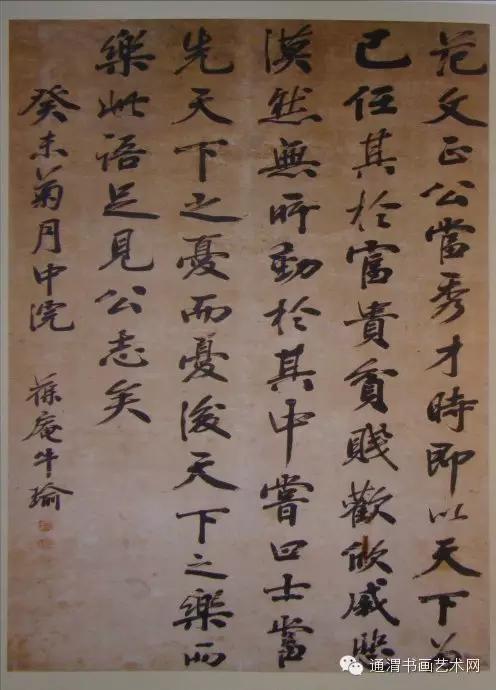 范文正公當秀才時即以天下為
己任其於富貴貧賤歡欣戚
漠然無所動於其中嘗曰士當
先天下之憂而憂後天下之樂而
樂此語足見公志矣
癸未菊月中浣
葆庵牛瑜
通渭书画艺术网